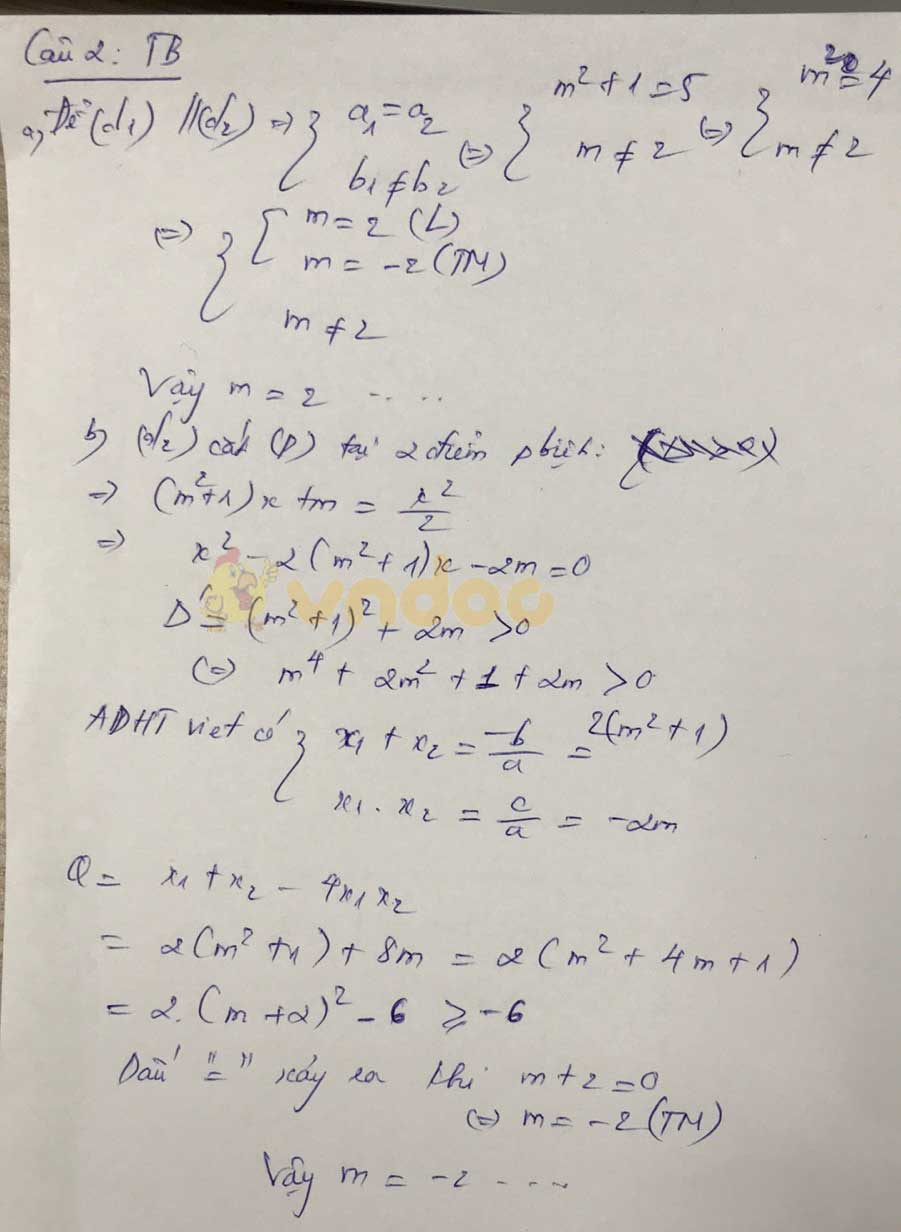 Câu 2: TB
a, Để (d1) // (d2) => { a1 = a2 <=> { m² + 1 = 5 <=> { m² = 4
b1 ≠ b2 m ≠ 2 m ≠ 2
<=> { [ m = 2 (L)
m = -2 (TM)
m ≠ 2
Vậy m = 2 ....
b) (d2) cắt (P) tại 2 điểm pbiệt:
=> (m²+1)x + m = x²/2
=> x² - 2(m² + 1)x - 2m = 0
vndoc
Δ' = (m² + 1)² + 2m > 0
<=> m⁴ + 2m² + 1 + 2m > 0
ADHT viet có { x1 + x2 = -b/a = 2(m² + 1)
x1 . x2 = c/a = -2m
Q = x1 + x2 - 4x1x2
= 2(m² + 1) + 8m = 2(m² + 4m + 1)
= 2.(m + 2)² - 6 ≥ -6
Dấu "=" xảy ra khi m + 2 = 0
<=> m = -2 (TM)
Vậy m = -2 ....